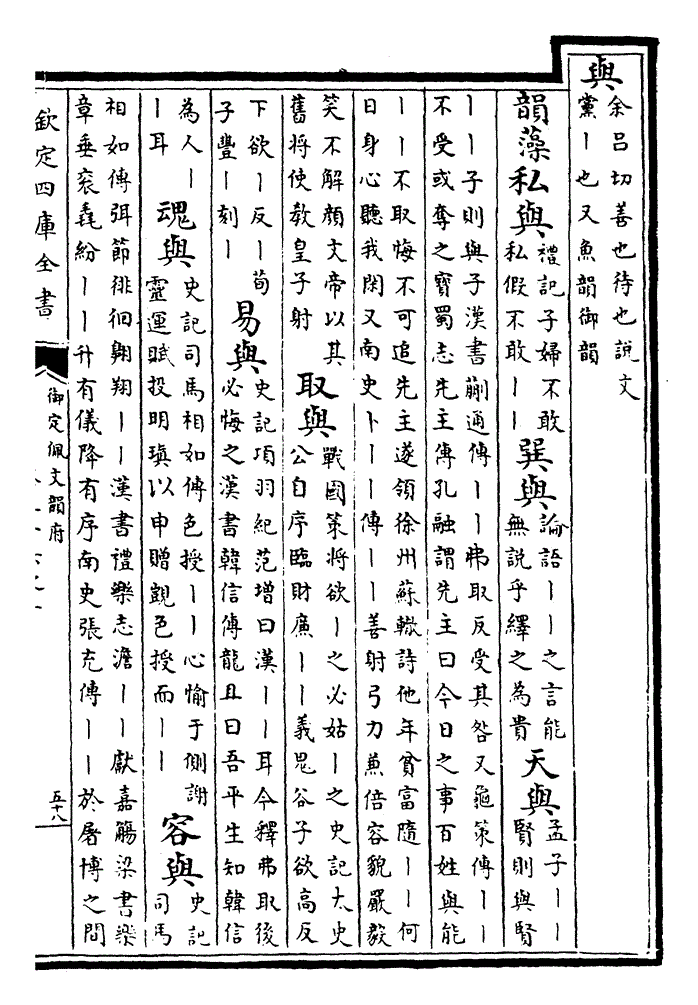 與余呂切善也待也說文
黨丨也又魚韻御韻
韻藻私與禮記子婦不敢
私假不敢丨丨
巽與論語丨丨之言能
無說乎繹之為貴
天與孟子丨丨
賢則與賢
丨丨子則與子漢書蒯通傳丨丨弗取反受其咎又龜策傳丨丨
不受或奪之寶蜀志先主傳孔融謂先主曰今日之事百姓與能
丨丨不取悔不可追先主遂領徐州蘇轍詩他年貧富隨丨丨何
日身心聽我閑又南史卜丨丨傳丨丨善射弓力兼倍容貌嚴毅
笑不解顏文帝以其
舊將使教皇子射
取與戰國策將欲丨之必姑丨之史記太史
公自序臨財廉丨丨義鬼谷子欲高反
下欲丨反丨荀
子豐丨刻丨
易與史記項羽紀范增曰漢丨丨耳今釋弗取後
必悔之漢書韓信傳龍且曰吾平生知韓信
為人丨
丨耳
魂與史記司馬相如傳色授丨丨心愉于側謝
靈運賦投明瑱以申贈覬色授而丨丨
容與史記
司馬
相如傳弭節徘徊翺翔丨丨漢書禮樂志澹丨丨獻嘉觴梁書樂
章垂衮毳紛丨丨升有儀降有序南史張充傳丨丨於屠博之間
欽定四庫全書
御定佩文韻府
五十八